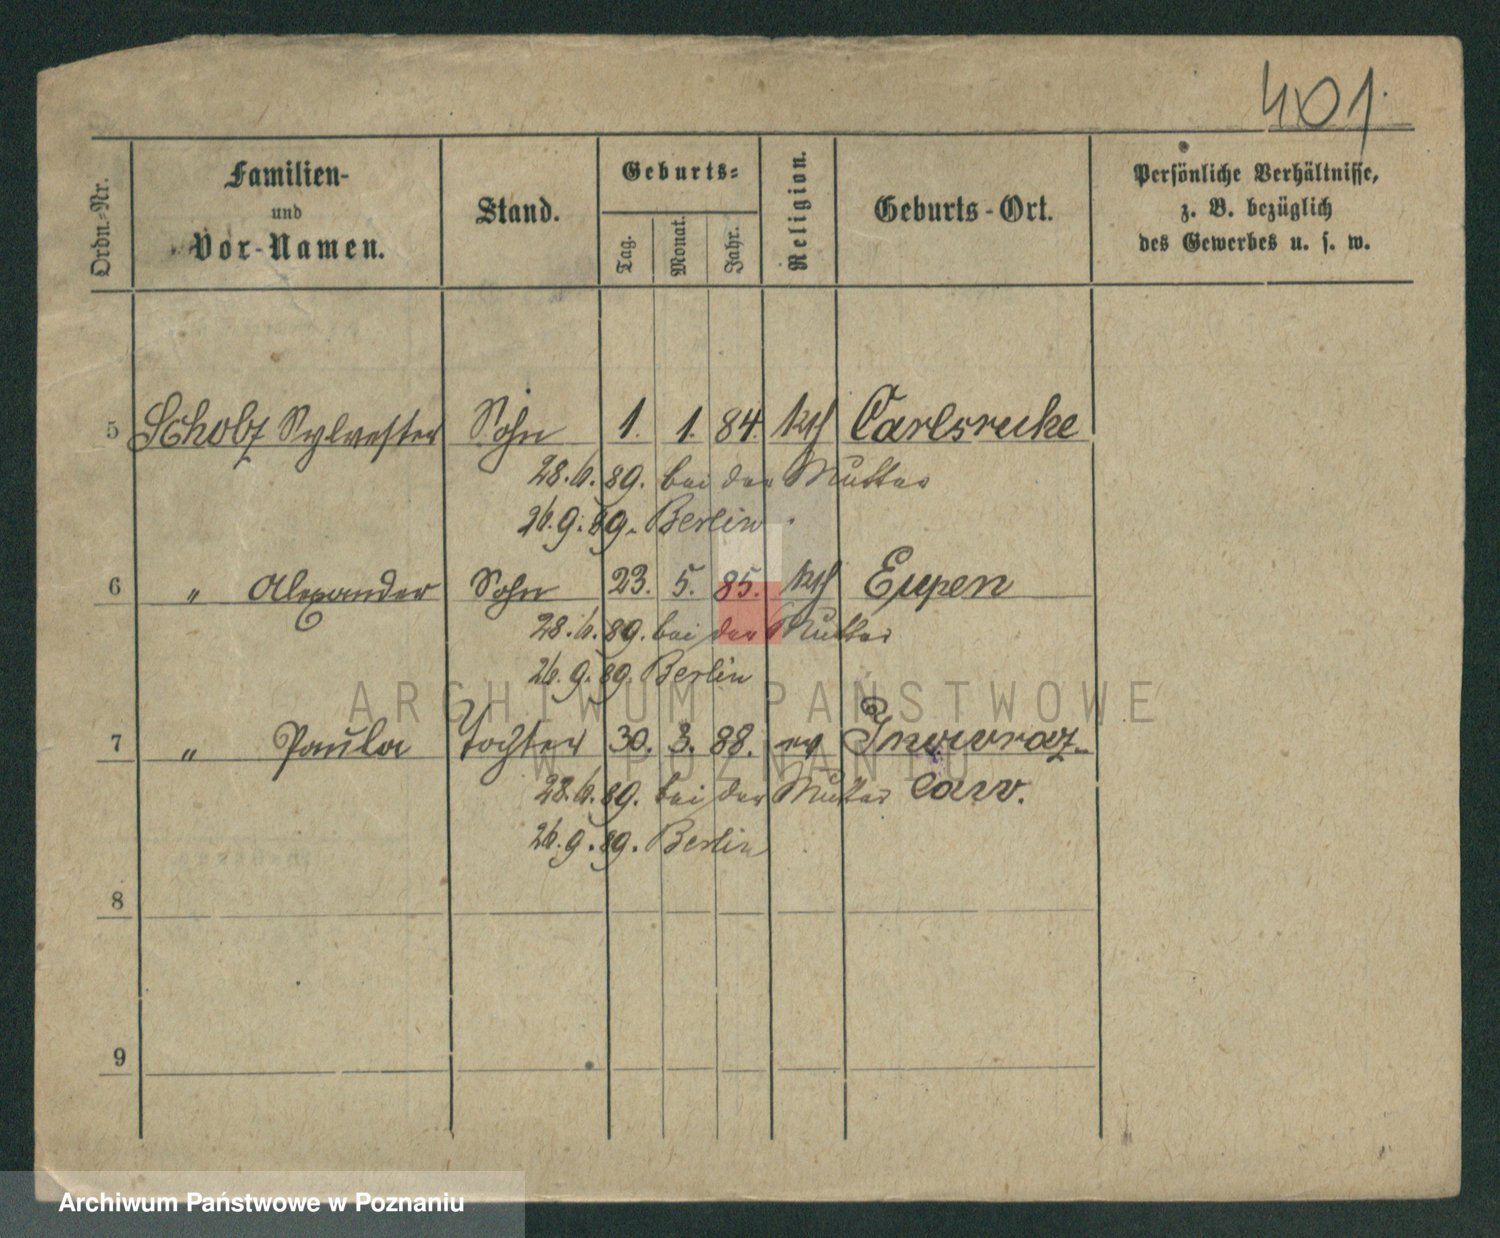 401.
Ordn.-Nr.
Familien-
und
Vor-Namen.
Stand.
Geburts-
Tag.
Monat.
Jahr.
Religion.
Geburts-Ort.
Persönliche Verhältnisse,
z. B. bezüglich
des Gewerbes u. s. w.
5 Scholz Sylvester Sohn 1. 1. 84. kth Carlsruhe
28.6.89. bei der Mutter
26.9.89. Berlin
6 " Alexander Sohn 23. 5. 85. kth Eupen
28.6.89. bei der Mutter
26.9.89. Berlin
7 " Paula Tochter 30. 3. 88. ev Inowraz-
28.6.89. bei der Mutter law.
26.9.89. Berlin
8
9
ARCHIWUM PAŃSTWOWE
W POZNANIU
Archiwum Państwowe w Poznaniu